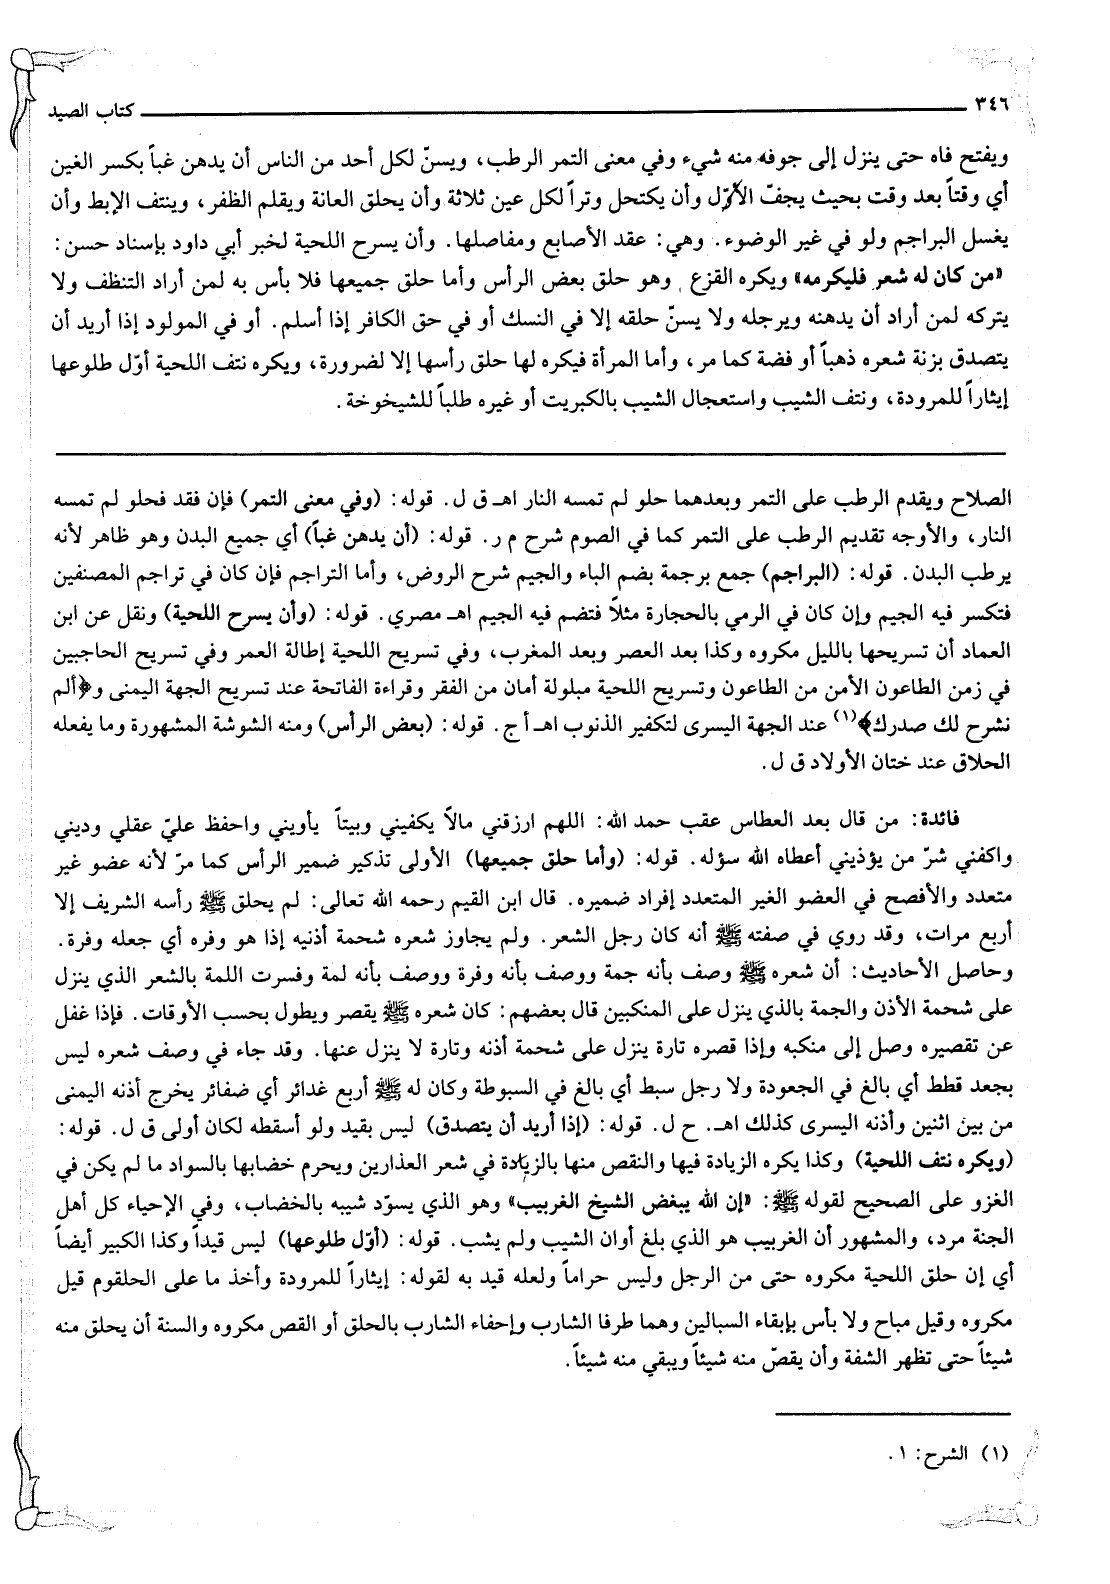 ٣٤٦ كتاب الصيد
ويفتح فاه حتى ينزل إلى جوفه منه شيء وفي معنى التمر الرطب، ويسنّ لكل أحد من الناس أن يدهن غباً بكسر الغين
أي وقتاً بعد وقت بحيث يجفّ الأوّل وأن يكتحل وتراً لكل عين ثلاثة وأن يحلق العانة ويقلم الظفر، وينتف الإبط وأن
يغسل البراجم ولو في غير الوضوء. وهي: عقد الأصابع ومفاصلها. وأن يسرح اللحية لخبر أبي داود بإسناد حسن:
«من كان له شعر فليكرمه» ويكره القزع وهو حلق بعض الرأس وأما حلق جميعها فلا بأس به لمن أراد التنظف ولا
يتركه لمن أراد أن يدهنه ويرجله ولا يسنّ حلقه إلا في النسك أو في حق الكافر إذا أسلم. أو في المولود إذا أريد أن
يتصدق بزنة شعره ذهباً أو فضة كما مر، وأما المرأة فيكره لها حلق رأسها إلا لضرورة، ويكره نتف اللحية أوّل طلوعها
إيثاراً للمرودة، ونتف الشيب واستعجال الشيب بالكبريت أو غيره طلباً للشيخوخة.
الصلاح ويقدم الرطب على التمر وبعدهما حلو لم تمسه النار اهـ ق ل. قوله: (وفي معنى التمر) فإن فقد فحلو لم تمسه
النار، والأوجه تقديم الرطب على التمر كما في الصوم شرح م ر. قوله: (أن يدهن غباً) أي جميع البدن وهو ظاهر لأنه
يرطب البدن. قوله: (البراجم) جمع برجمة بضم الباء والجيم شرح الروض، وأما التراجم فإن كان في تراجم المصنفين
فتكسر فيه الجيم وإن كان في الرمي بالحجارة مثلاً فتضم فيه الجيم اهـ مصري. قوله: (وأن يسرح اللحية) ونقل عن ابن
العماد أن تسريحها بالليل مكروه وكذا بعد العصر وبعد المغرب، وفي تسريح اللحية إطالة العمر وفي تسريح الحاجبين
في زمن الطاعون الأمن من الطاعون وتسريح اللحية مبلولة أمان من الفقر وقراءة الفاتحة عند تسريح الجهة اليمنى و﴿ألم
نشرح لك صدرك﴾(١) عند الجهة اليسرى لتكفير الذنوب اهـ أ ج. قوله: (بعض الرأس) ومنه الشوشة المشهورة وما يفعله
الحلاق عند ختان الأولاد ق ل.
فائدة: من قال بعد العطاس عقب حمد الله: اللهم ارزقني مالاً يكفيني وبيتاً يأويني واحفظ عليّ عقلي وديني
واكفني شرّ من يؤذيني أعطاه الله سؤله. قوله: (وأما حلق جميعها) الأولى تذكير ضمير الرأس كما مرّ لأنه عضو غير
متعدد والأفصح في العضو الغير المتعدد إفراد ضميره. قال ابن القيم رحمه الله تعالى: لم يحلق ﷺ رأسه الشريف إلا
أربع مرات، وقد روي في صفته ﷺ أنه كان رجل الشعر. ولم يجاوز شعره شحمة أذنيه إذا هو وفره أي جعله وفرة.
وحاصل الأحاديث: أن شعره ﷺ وصف بأنه جمة ووصف بأنه وفرة ووصف بأنه لمة وفسرت اللمة بالشعر الذي ينزل
على شحمة الأذن والجمة بالذي ينزل على المنكبين قال بعضهم: كان شعره ﷺ يقصر ويطول بحسب الأوقات. فإذا غفل
عن تقصيره وصل إلى منكبه وإذا قصره تارة ينزل على شحمة أذنه وتارة لا ينزل عنها. وقد جاء في وصف شعره ليس
بجعد قطط أي بالغ في الجعودة ولا رجل سبط أي بالغ في السبوطة وكان له ﷺ أربع غدائر أي ضفائر يخرج أذنه اليمنى
من بين اثنين وأذنه اليسرى كذلك اهـ. ح ل. قوله: (إذا أريد أن يتصدق) ليس بقيد ولو أسقطه لكان أولى ق ل. قوله:
(ويكره نتف اللحية) وكذا يكره الزيادة فيها والنقص منها بالزيادة في شعر العذارين ويحرم خضابها بالسواد ما لم يكن في
الغزو على الصحيح لقوله ﷺ: «إن الله يبغض الشيخ الغربيب» وهو الذي يسوّد شيبه بالخضاب، وفي الإحياء كل أهل
الجنة مرد، والمشهور أن الغربيب هو الذي بلغ أوان الشيب ولم يشب. قوله: (أوّل طلوعها) ليس قيداً وكذا الكبير أيضاً
أي إن حلق اللحية مكروه حتى من الرجل وليس حراماً ولعله قيد به لقوله: إيثاراً للمرودة وأخذ ما على الحلقوم قيل
مكروه وقيل مباح ولا بأس بإبقاء السبالين وهما طرفا الشارب وإحفاء الشارب بالحلق أو القص مكروه والسنة أن يحلق منه
شيئاً حتى تظهر الشفة وأن يقصّ منه شيئاً ويبقي منه شيئاً.
(١) الشرح: ١.